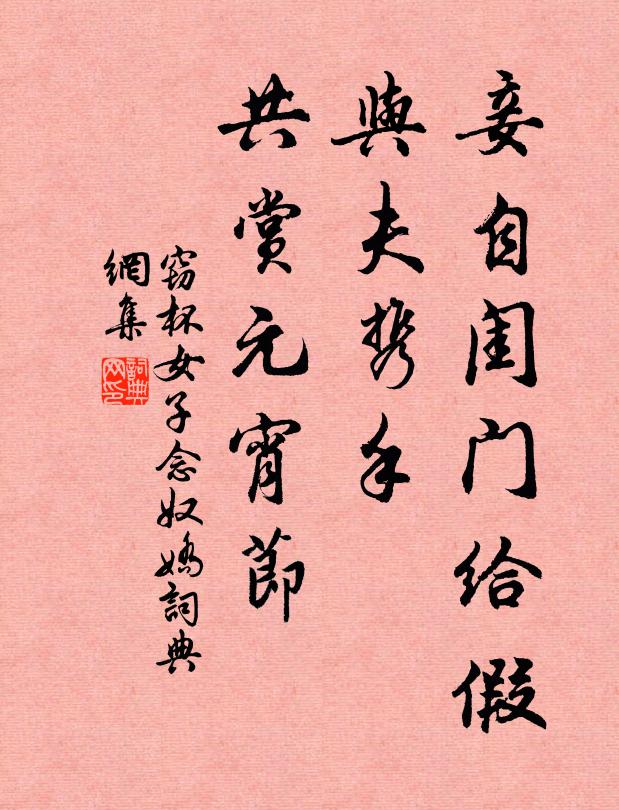 妾自闺门给假
與夫携手
共賞元宵節
窃杯女子念奴嬌詞典
網集
詞典
网印